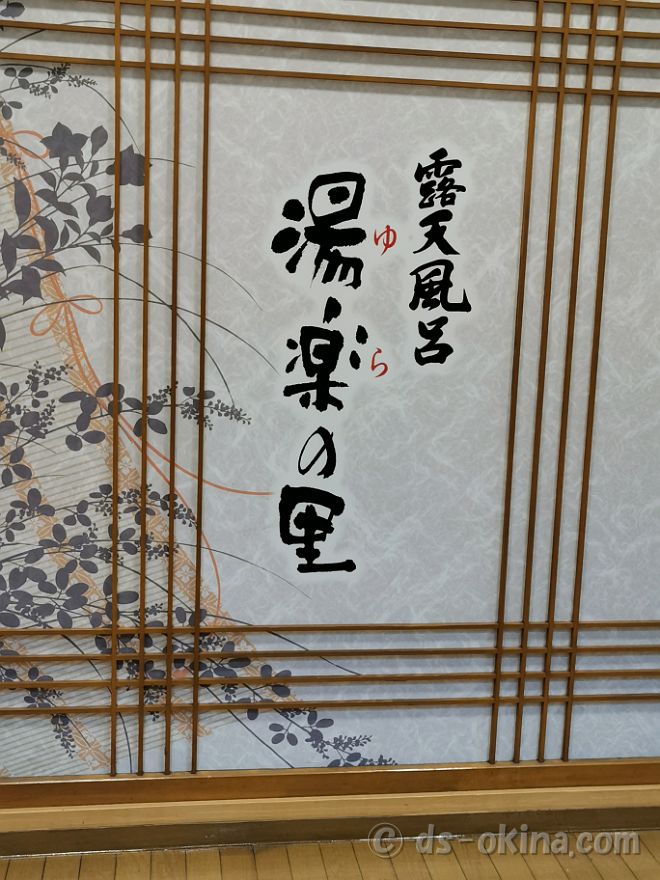 露天風呂
湯楽の里
ゆ
ら
© ds-okina.com